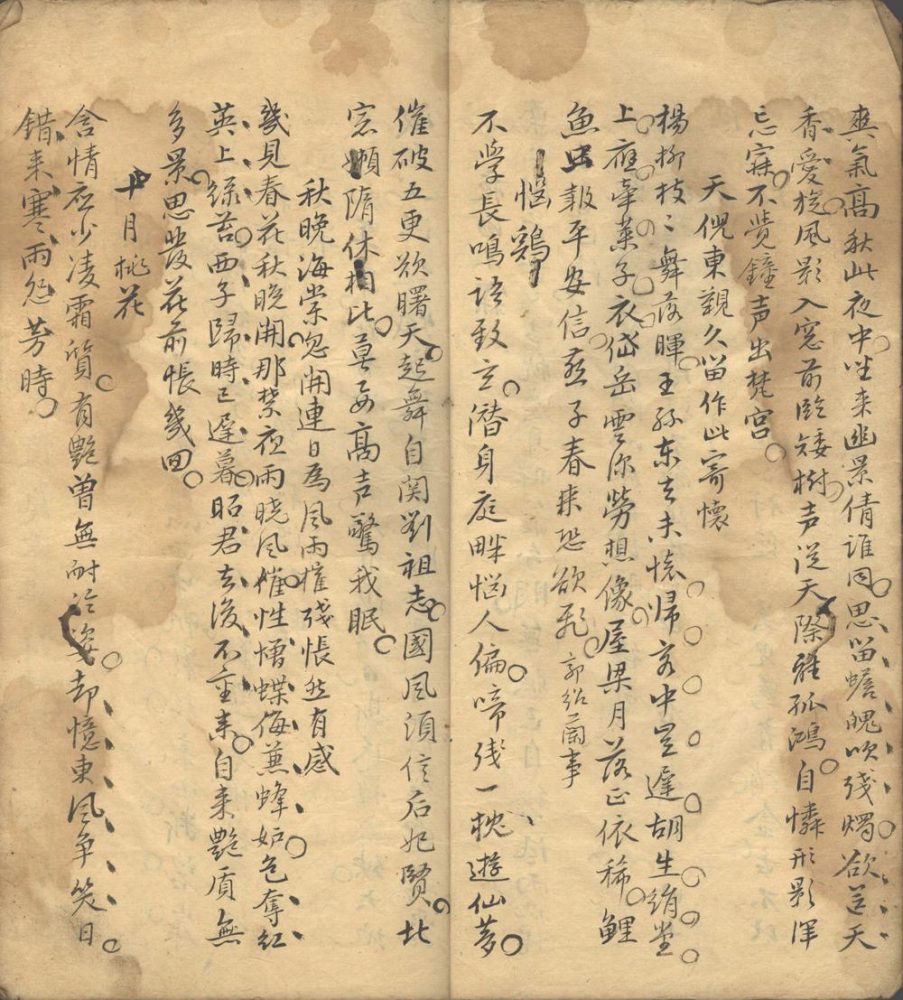 爽氣高秋此夜中坐来幽景倩誰同思留蟾魄吹残燭欲送天
香愛旋風影入窓前臨矮樹声從天際雜孤鴻自憐形影渾
忘寐不覚鐘声出梵宮
天倪東觀久留作此寄懐
楊柳枝〻舞落暉王孫東去未懐帰客中豈遲胡生絹堂
上應牽莱子衣岱岳雲深勞想像屋梁月落正依稀鯉
魚虫報平安信燕子春来恐欲飛 郭紹蘭事
惱鶏
不學長鳴語致玄潜身庭畔惱人偏啼残一枕遊仙夢
催破五更欲曙天起舞自関劉祖志國風須信后妃賢北
窓嬾隋休相比莫妄高声驚我眠
秋晚海棠忽開連日為風雨摧残悵然有感
幾見春花秋晚開那禁夜雨曉風催性憎蝶侮兼蜂妒色奪紅
英上緑苔西子歸時已遲暮昭君去後不重来自来艷質無
多景思發花前悵幾回
十月桃花
含情応少凌霜質有艶曽無耐冷姿却憶東風争笑日
錯来寒雨怨芳時